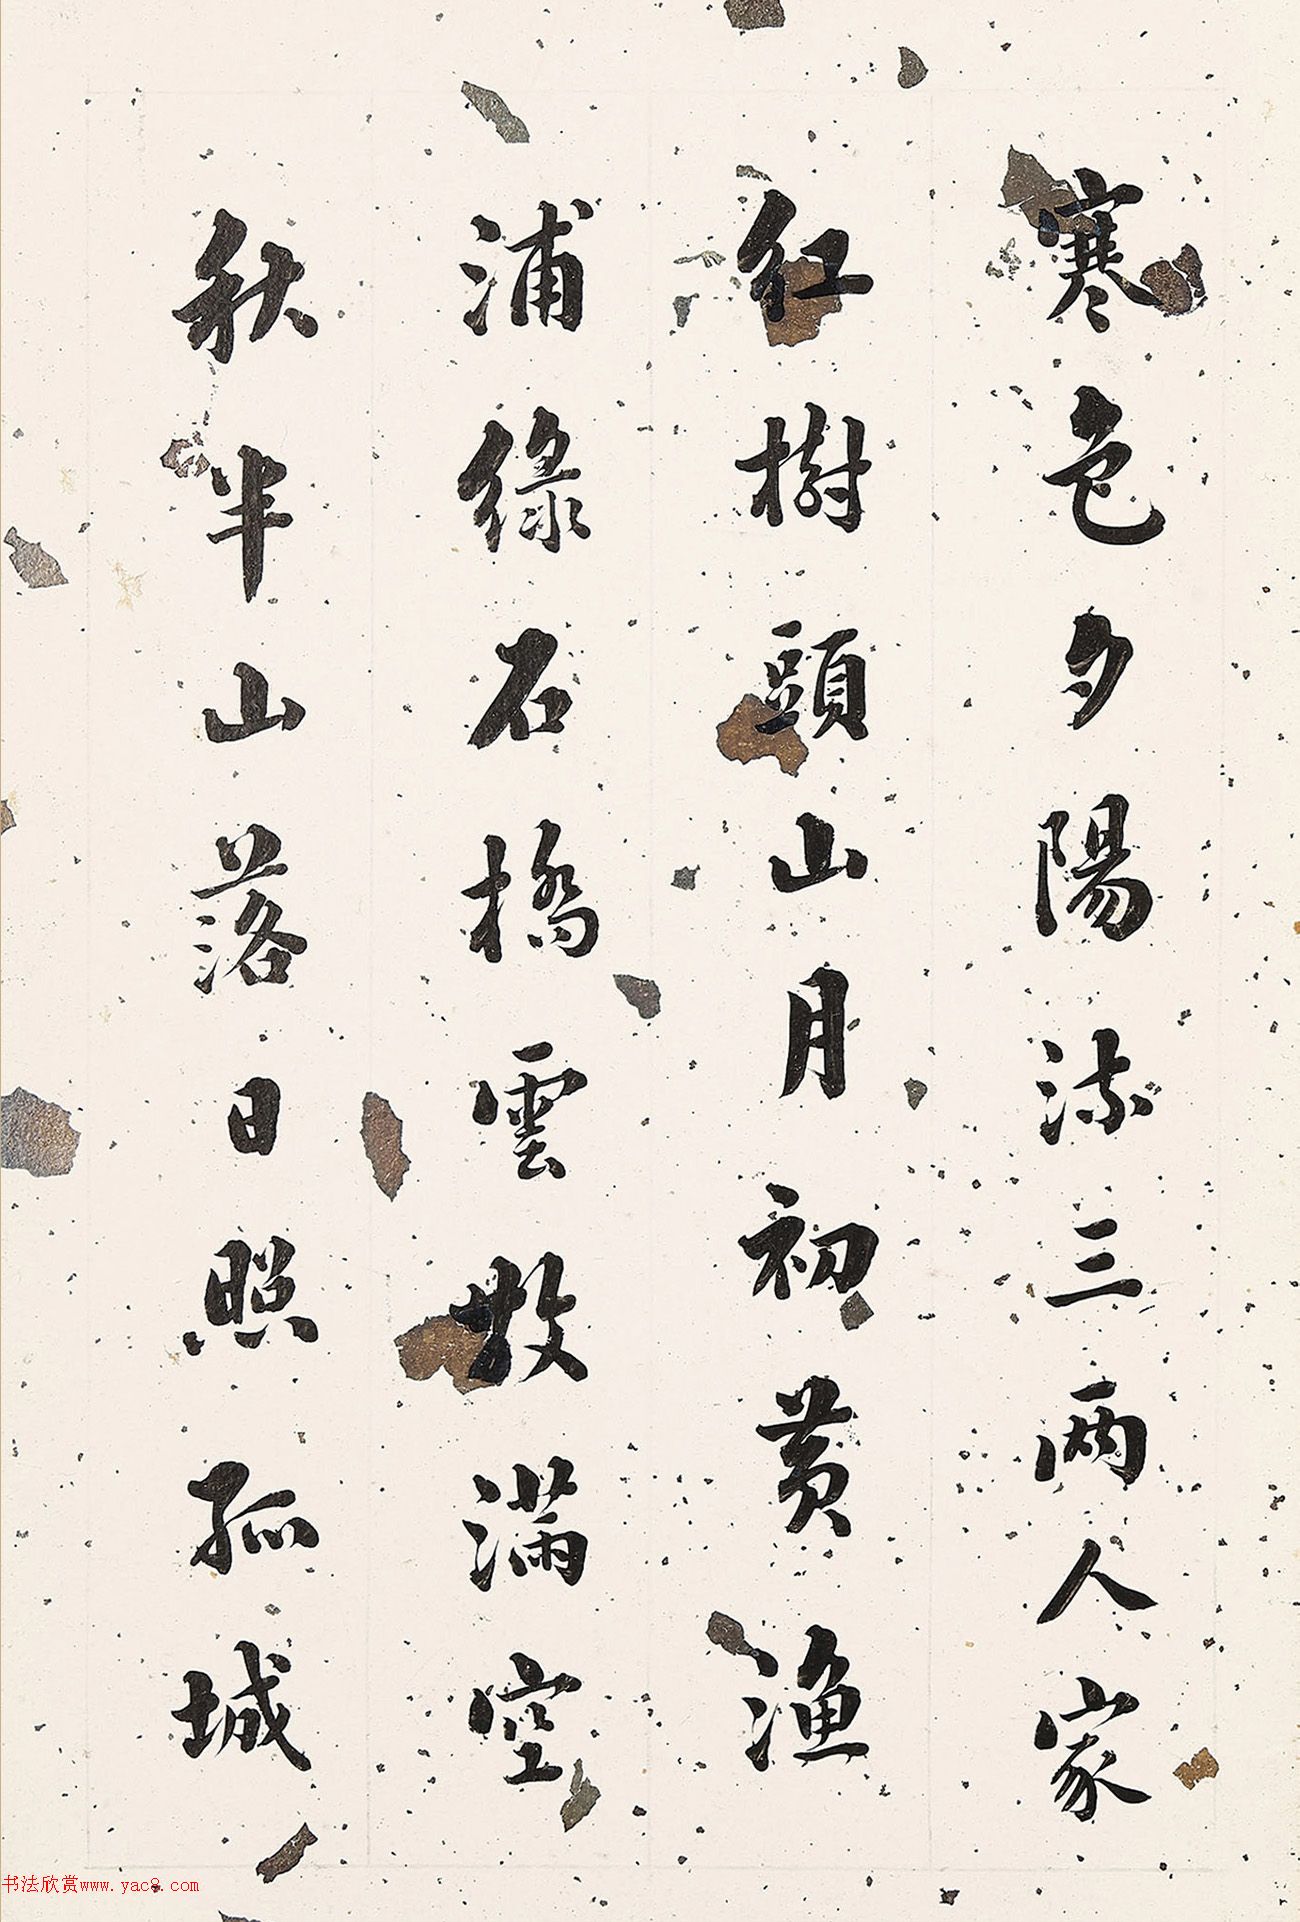 寒色夕陽流三兩人家
紅樹頭山月初黃漁
浦綠石橋雲散滿空
秋半山落日照孤城
书法欣赏www.yac8.com